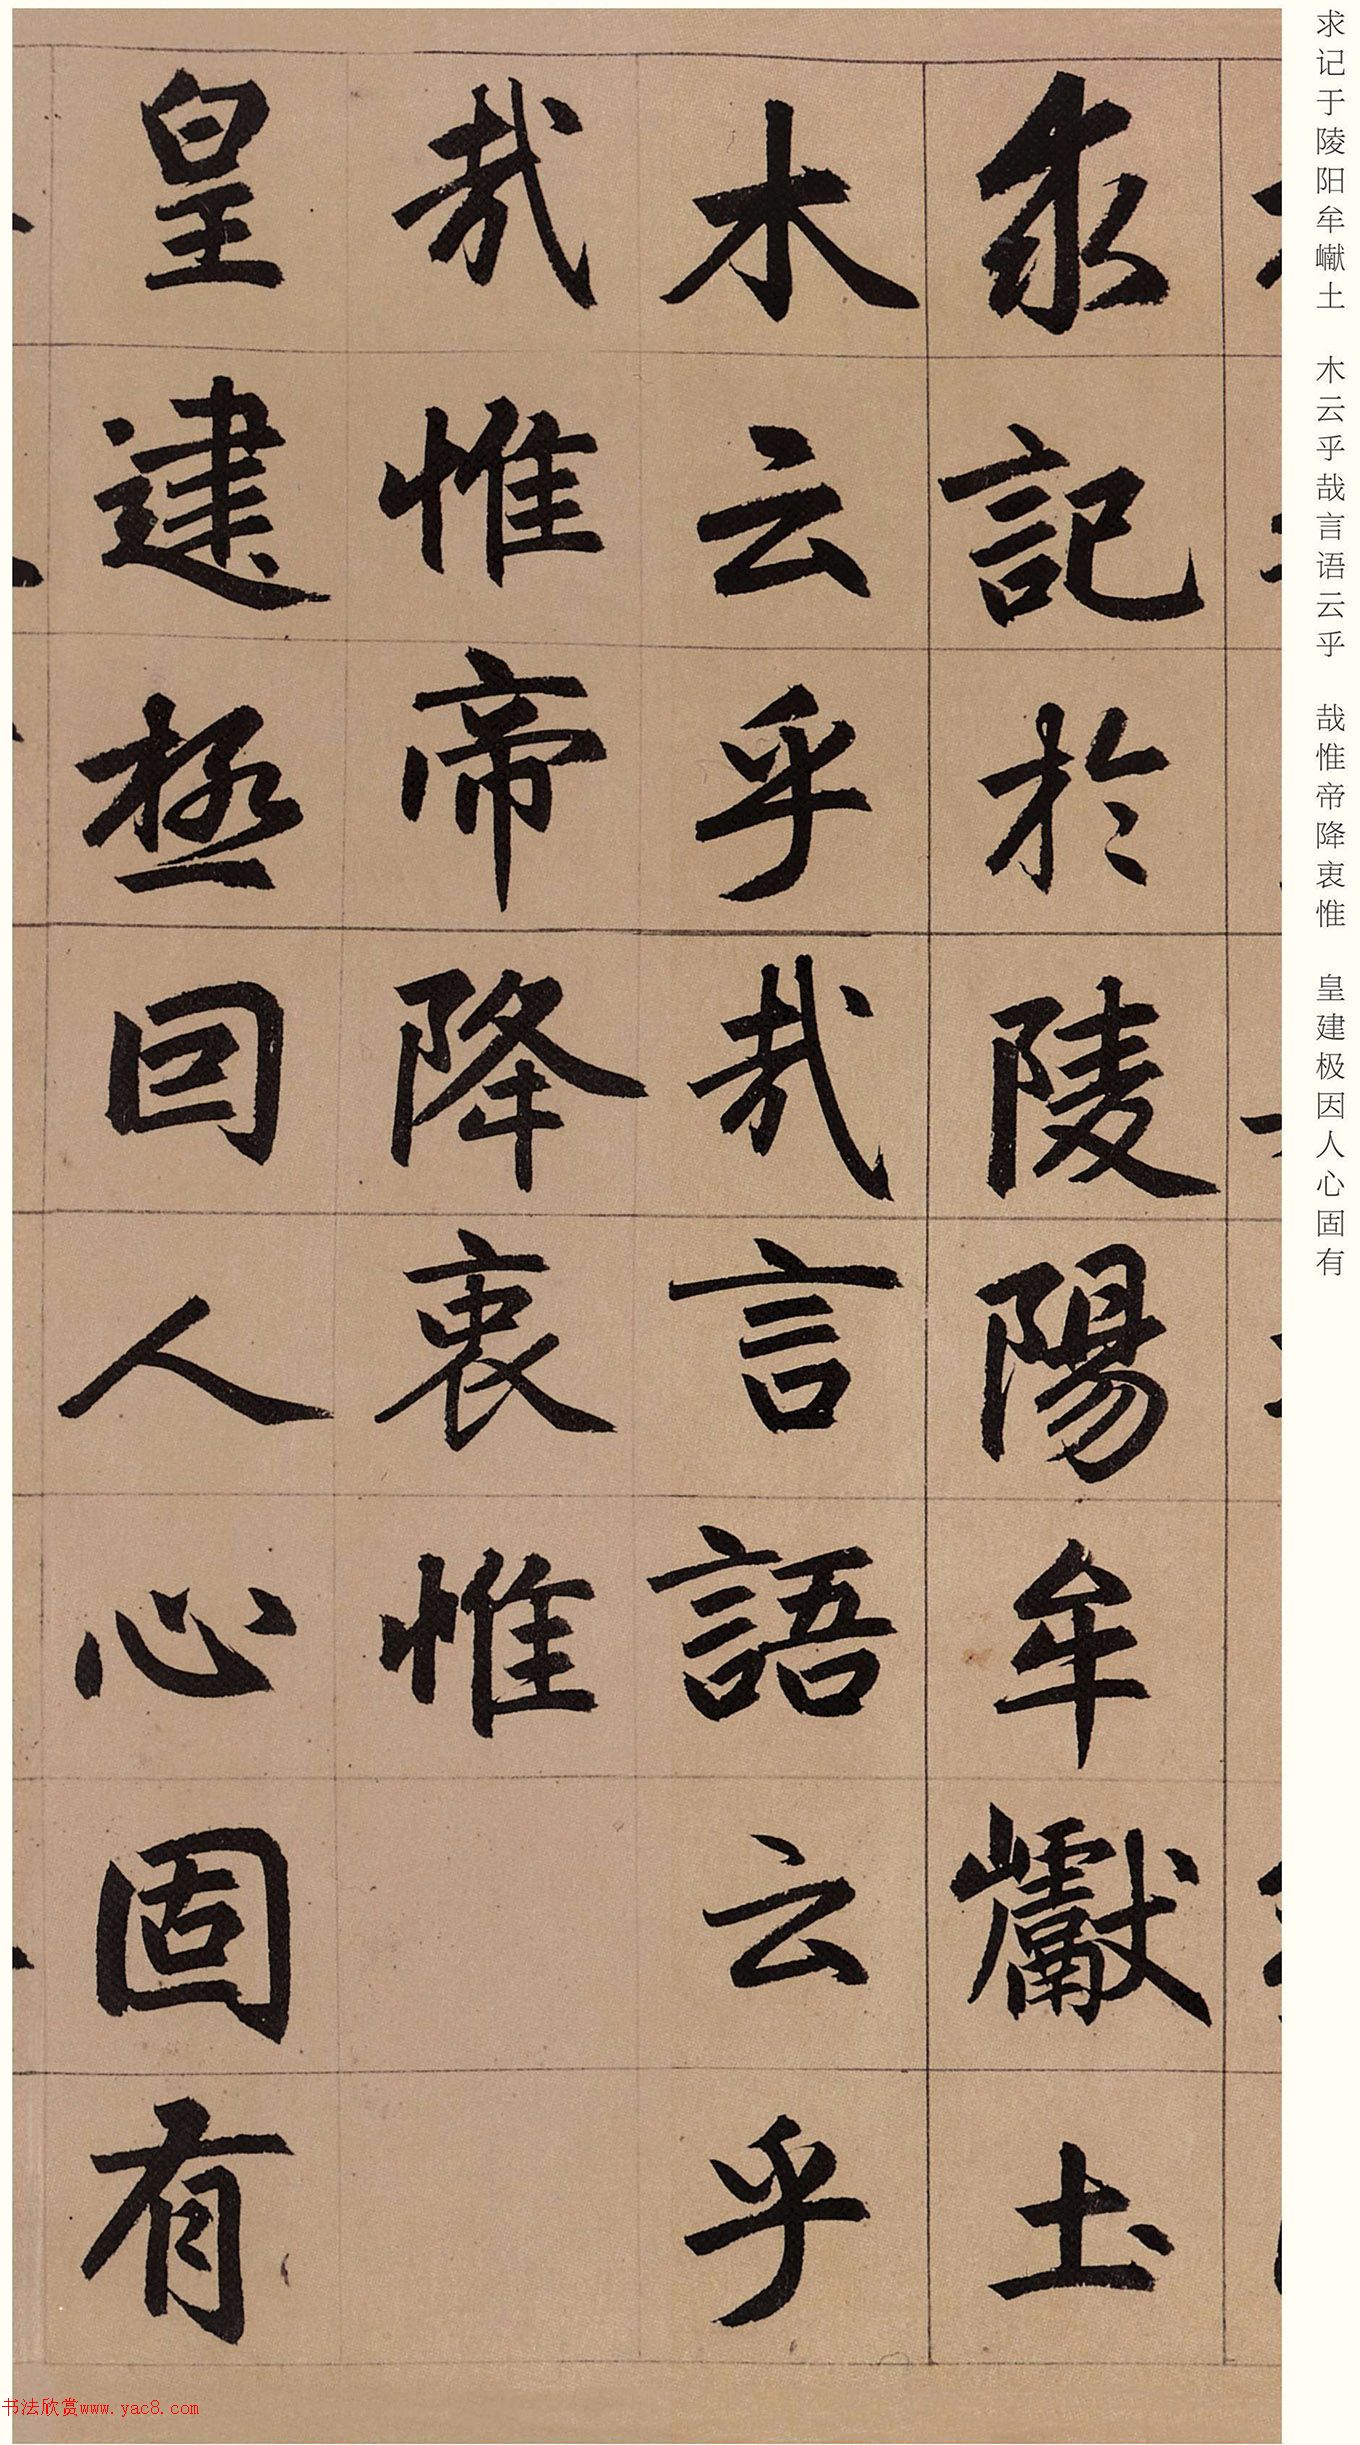 求记于陵阳牟巘土　木云乎哉言语云乎　哉惟帝降衷惟　皇建极因人心固有
求記於陵陽牟巘土
木云乎哉言語云乎
哉惟帝降衷惟
皇建極因人心固有
书法欣赏www.yac8.com